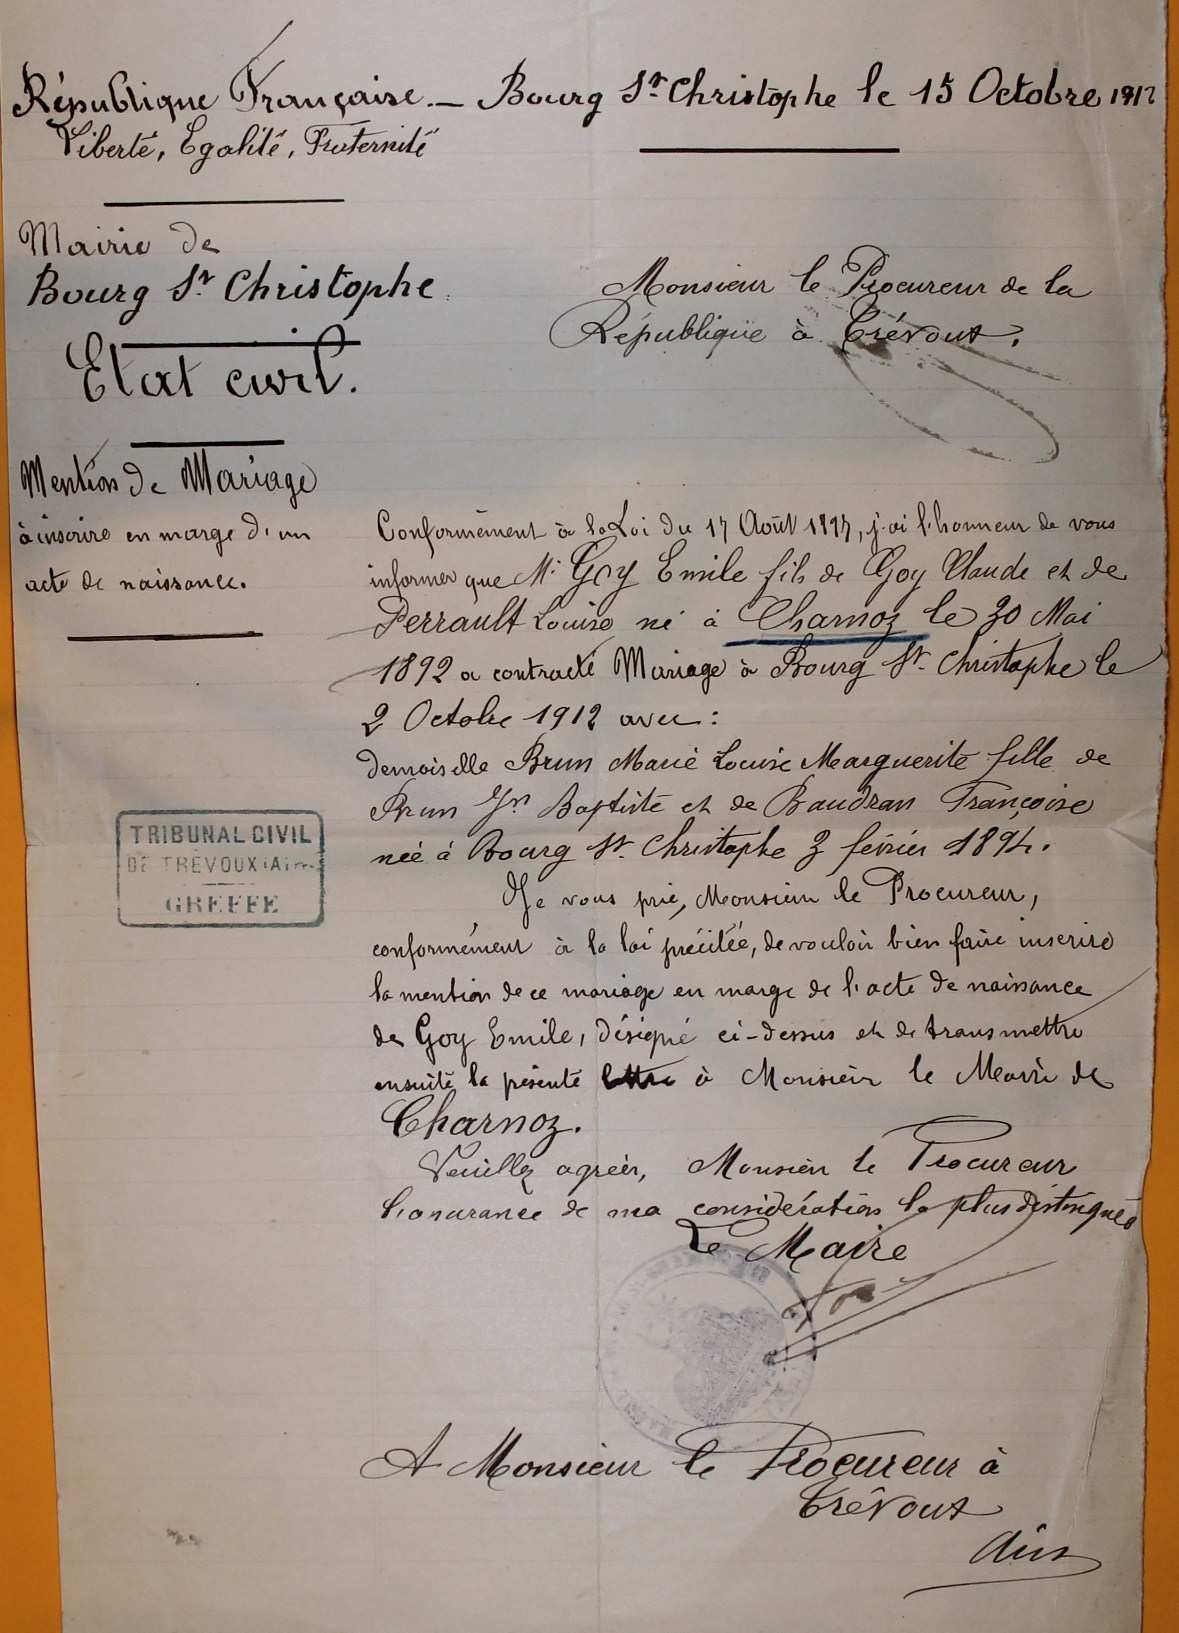 République Française. — Bourg St. Christophe le 15 Octobre 1912
Liberté, Egalité, Fraternité
Mairie de
Bourg St. Christophe
Etat civil.
Mention de Mariage
à inscrire en marge d'un
acte de naissance.
Monsieur le Procureur de la
République à Trévoux.
Conformément à la Loi du 17 Août 1897, j'ai l'honneur de vous
informer que Mr. Goy Emile fils de Goy Claude et de
Perrault Louise né à Charnoz le 30 Mai
1892 a contracté Mariage à Bourg St. Christophe le
2 Octobre 1912 avec :
demoiselle Brun Marie Louise Marguerite fille de
Brun Jn Baptiste et de Baudran Françoise
née à Bourg St. Christophe 3 février 1894.
Je vous prie, Monsieur le Procureur,
conformément à la loi précitée, de vouloir bien faire inscrire
la mention de ce mariage en marge de l'acte de naissance
de Goy Emile, désigné ci-dessus et de transmettre
ensuite la présente lettre à Monsieur le Maire de
Charnoz.
Veuillez agréer, Monsieur le Procureur
l'assurance de ma considération la plus distinguée
Le Maire
TRIBUNAL CIVIL
DE TREVOUX (Ain)
GREFFE
A Monsieur le Procureur à
Trévoux
Ain